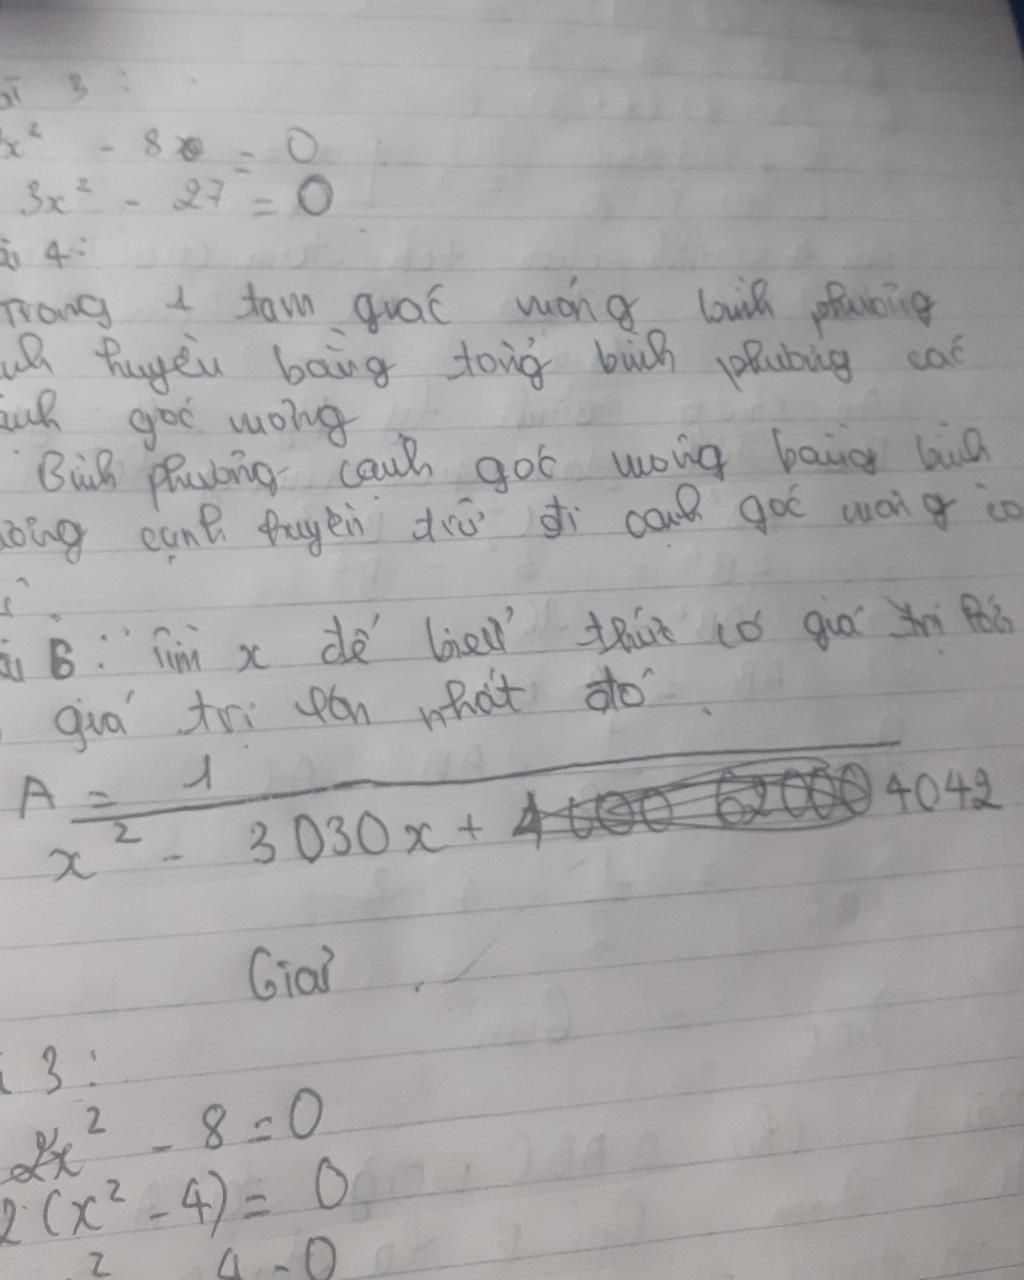 3 :
x² - 8 = 0
3x² - 27 = 0
4:
Trong 1 tam guác vuóng bình phương
huyền bằng tổng bình phương các
góc vuông
Bình phương cạnh góc vuông bằng bình
cạnh huyền trừ đi cạnh góc vuông
6: Tìm x để biểu thức có giá trị
giá trị lớn nhất đó.
A = 1
x² - 3030x + 4042
Giải
3:
2x² - 8 = 0
2(x² - 4) = 0